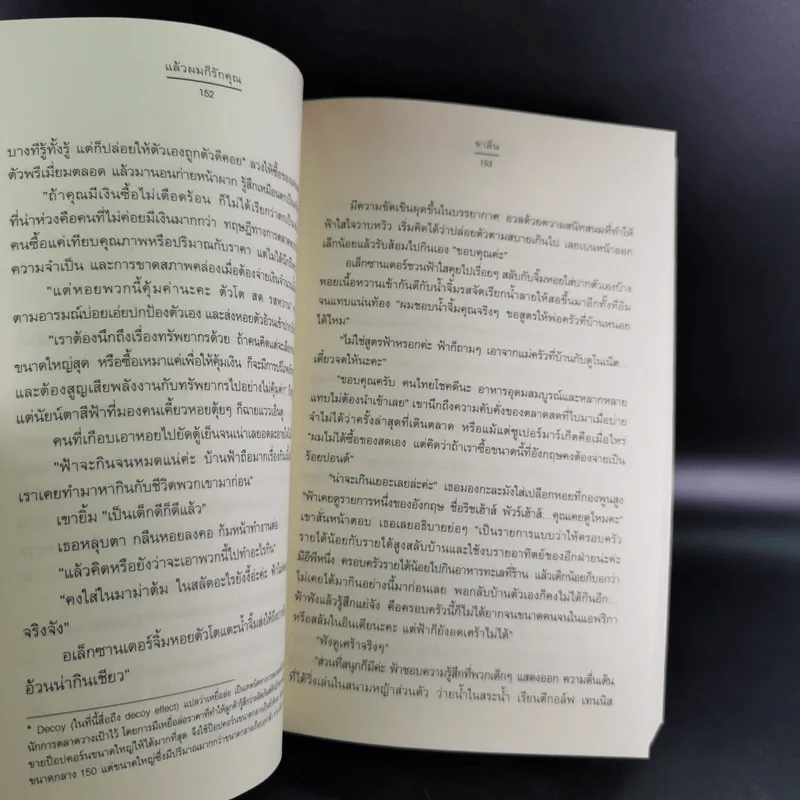 แล้วผมก็รักคุณ
152
บางทีรู้ทั้งรู้ แต่ก็ปล่อยให้ตัวเองถูกตัวดีคอย* ลวงให้ซื้อ
ตัวพรีเมี่ยมตลอด แล้วมานอนก่ายหน้าผาก รู้สึกเหมือน
"ถ้าคุณมีเงินซื้อไม่เดือดร้อน ก็ไม่ได้เรียกว่า
ที่น่าห่วงคือคนที่ไม่ค่อยมีเงินมากกว่า ทฤษฎีทางการตลาด
คนซื้อแค่เทียบคุณภาพหรือปริมาณกับราคา แต่ไม่ได้
ความจำเป็น และการขาดสภาพคล่องเมื่อต้องจ่ายเงิน
"แต่หอยพวกนี้คุ้มค่านะคะ ตัวโต สด รสหวาน"
ตามอารมณ์บ่อยเอ่ยปกป้องตัวเอง และส่งหอยตัวอ้วนเข้าปาก
"เราต้องนึกถึงเรื่องทรัพยากรด้วย ถ้าคนคิดแต่จะ
ขนาดใหญ่สุด หรือซื้อเหมาแค่เพื่อให้คุ้มเงิน ก็จะมีการ
และต้องสูญเสียพลังงานกับทรัพยากรไปอย่างไม่คุ้มค่า"
แต่นัยน์ตาสีฟ้าที่มองคนเคี้ยวหอยตุ้ยๆ ก็ฉายแววเอ็นดู
คนที่เกือบเอาหอยไปยัดตู้เย็นจนเน่าเลย
"ฟ้าจะกินจนหมดแน่ค่ะ บ้านฟ้าถือมากเรื่อง
เราเคยทำมาหากินกับชีวิตพวกเขามาก่อน"
เขายิ้ม "เป็นเด็กดีก็ดีแล้ว"
เธอหลุบตา กลืนหอยลงคอ ก้มหน้าทำงานต่อ
"แล้วคิดหรือยังว่าจะเอาพวกนี้ไปทำอะไรกิน"
"คงใส่ในมาม่าต้ม ในสลัดอะไรยังงี้อะค่ะ ฟ้า
จริงจัง"
อเล็กซานเดอร์จิ้มหอยตัวโตแตะน้ำจิ้มส่งให้
อ้วนน่ากินเชียว"
* Decoy (ในที่นี้สื่อถึง decoy effect) แปลว่าเหยื่อล่อ เป็นเทคนิคทางการตลาด
นักการตลาดวางเป้าไว้ โดยการมีเหยื่อล่อราคาที่ทำให้ลูกค้ารู้สึกว่า
ขายป๊อปคอร์นขนาดใหญ่ให้ได้มากที่สุด จึงใช้ป๊อปคอร์นขนาดกลาง
ขนาดกลาง 150 แต่ขนาดใหญ่ซึ่งมีปริมาณมากกว่าขนาดกลาง
ชาลีน
153
มีความขัดเขินผุดขึ้นในบรรยากาศ อวลด้วยความสนิทสนมที่ทำให้
ฟ้าใสใจวาบหวิว เริ่มคิดได้ว่าปล่อยตัวตามสบายเกินไป เลยเบนหน้าออก
เล็กน้อยแล้วรับส้อมไปกินเอง "ขอบคุณค่ะ"
อเล็กซานเดอร์ชวนฟ้าใสคุยไปเรื่อยๆ สลับกับจิ้มหอยใส่ปากตัวเองบ้าง
หอยเนื้อหวานเข้ากันดีกับน้ำจิ้มรสจัดเรียกน้ำลายให้สอขึ้นมาอีกทั้งที่อิ่ม
จนแทบแน่นท้อง "ผมชอบน้ำจิ้มคุณจริงๆ ขอสูตรให้พ่อครัวที่บ้านหน่อย
ได้ไหม"
"ไม่ใช่สูตรฟ้าหรอกค่ะ ฟ้าก็ถามๆ เอาจากแม่ครัวที่บ้านกับดูในเน็ต...
เดี๋ยวจดให้นะคะ"
"ขอบคุณครับ คนไทยโชคดีนะ อาหารอุดมสมบูรณ์และหลากหลาย
แทบไม่ต้องนำเข้าเลย" เขานึกถึงความคับคั่งของตลาดสดที่ไปมาเมื่อบ่าย
จำไม่ได้ว่าครั้งล่าสุดที่เดินตลาด หรือแม้แต่ซูเปอร์มาร์เก็ตคือเมื่อไหร่
"ผมไม่ได้ซื้อของสดเอง แต่คิดว่าถ้าเราซื้อขนาดนี้ที่อังกฤษคงต้องจ่ายเป็น
ร้อยปอนด์"
"น่าจะเกินเยอะเลยล่ะค่ะ" เธอมองกะละมังใส่เปลือกหอยที่กองพูนสูง
"ฟ้าเคยดูรายการหนึ่งของอังกฤษ ชื่อริชเฮ้าส์ พัวร์เฮ้าส์...คุณเคยดูไหมคะ"
เขาสั่นหน้าตอบ เธอเลยอธิบายย่อๆ "เป็นรายการแบบว่าให้ครอบครัว
รายได้น้อยกับรายได้สูงสลับบ้านและใช้งบรายอาทิตย์ของอีกฝ่ายน่ะค่ะ
มีอีพีหนึ่ง ครอบครัวรายได้น้อยไปกินอาหารทะเลที่ร้าน แล้วเด็กน้อยก็บอกว่า
ไม่เคยได้มากินอย่างนี้มาก่อนเลย พอกลับบ้านตัวเองก็คงไม่ได้กินอีก...
ฟ้าฟังแล้วรู้สึกแย่จัง คือครอบครัวนี้ก็ไม่ได้ยากจนขนาดคนจนในแอฟริกา
หรือสลัมในอินเดียนะคะ แต่ฟ้าก็ยังอดเศร้าไม่ได้"
"ฟังดูเศร้าจริงๆ"
"ส่วนที่สนุกก็มีค่ะ ฟ้าชอบความรู้สึกที่พวกเด็กๆ แสดงออก ความตื่นเต้น
ที่ได้วิ่งเล่นในสนามหญ้าส่วนตัว ว่ายน้ำในสระน้ำ เรียนตีกอล์ฟ เทนนิส